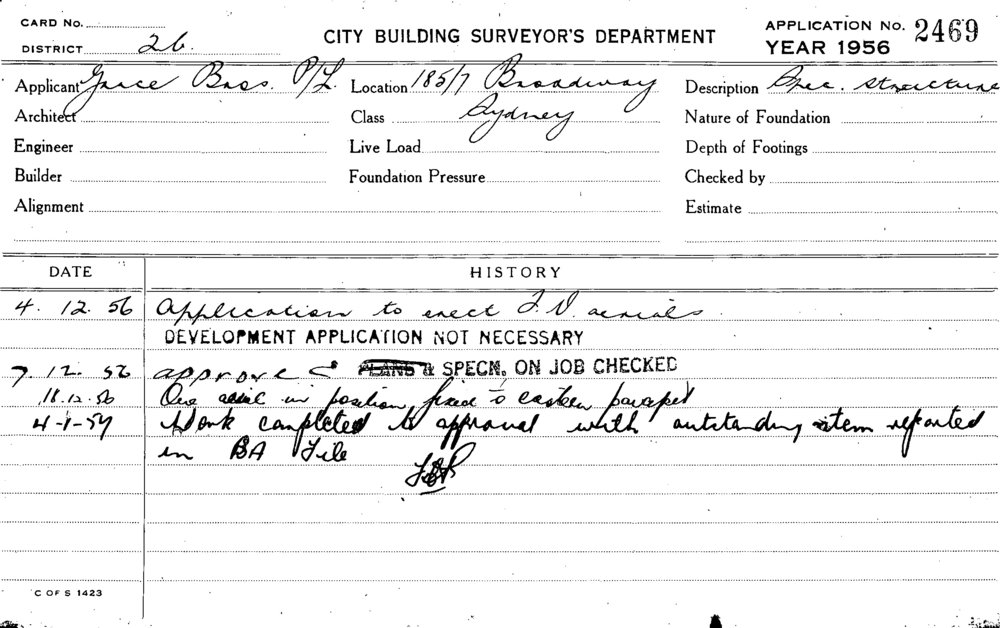 CARD No.
DISTRICT 26.
CITY BUILDING SURVEYOR'S DEPARTMENT
APPLICATION No. 2469
YEAR 1956
Applicant Grace Bros. P/L. Location 185/7 Broadway Description Spec. structure
Architect Class Sydney Nature of Foundation
Engineer Live Load Depth of Footings
Builder Foundation Pressure Checked by
Alignment Estimate
DATE HISTORY
4. 12. 56 Application to erect T.V. aerials.
DEVELOPMENT APPLICATION NOT NECESSARY
7. 12. 56 approved PLANS & SPECN. ON JOB CHECKED
18.12.56 One aerial in position, fixed to eastern parapet
4-1-57 Work completed to approval with outstanding item reported
in BA File
C OF S 1423